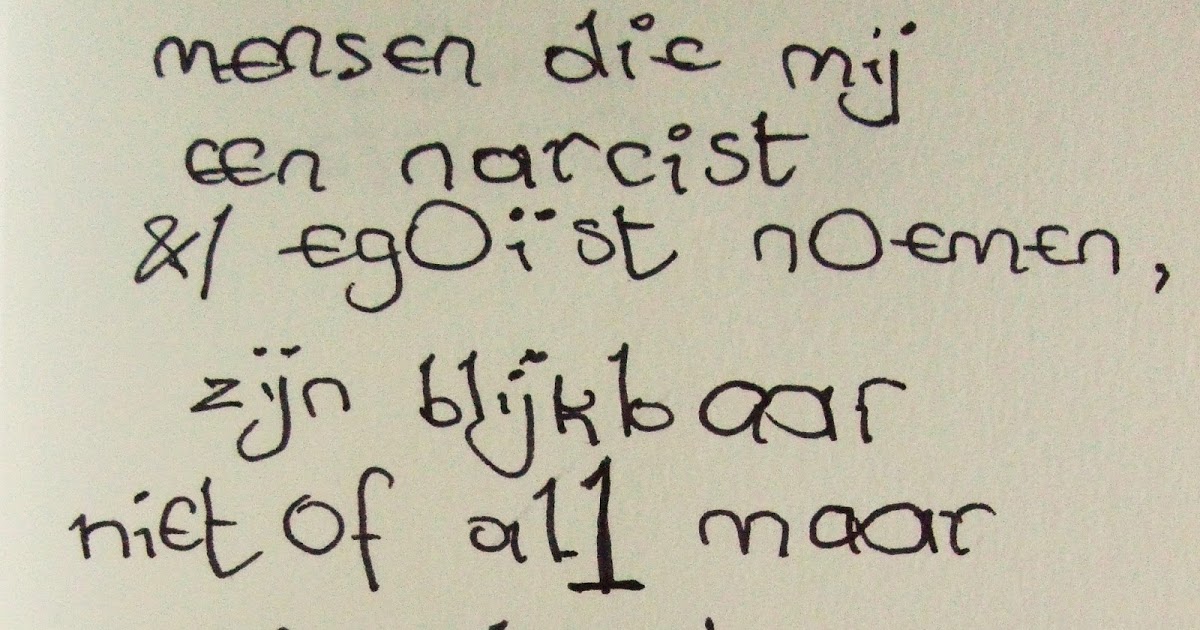 mensen die mij
een narcist
&/ egoïst noemen,
zijn blijkbaar
niet of al1 maar